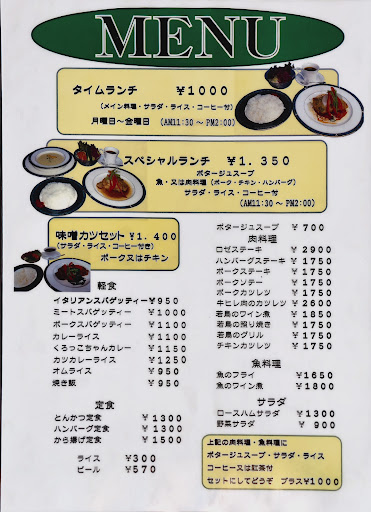 MENU
タイムランチ ￥1000
(メイン料理・サラダ・ライス・コーヒー付)
月曜日〜金曜日 (AM11:30 〜 PM2:00)
スペシャルランチ ￥1.350
ポタージュスープ
魚・又は肉料理(ポーク・チキン・ハンバーグ)
サラダ・ライス・コーヒー付
(AM11:30 〜 PM2:00)
味噌カツセット ￥1.400
(サラダ・ライス・コーヒー付き)
ポーク又はチキン
軽食
イタリアンスパゲッティー ￥950
ミートスパゲッティー ￥1000
ポークスパゲッティー ￥1100
カレーライス ￥1100
くろっこちゃんカレー ￥1150
カツカレーライス ￥1250
オムライス ￥950
焼き飯 ￥950
定食
とんかつ定食 ￥1300
ハンバーグ定食 ￥1300
から揚げ定食 ￥1500
ライス ￥300
ビール ￥570
ポタージュスープ ￥700
肉料理
ロゼステーキ ￥2900
ハンバーグステーキ ￥1750
ポークステーキ ￥1750
ポークソテー ￥1750
ポークカツレツ ￥1750
牛ヒレ肉のカツレツ ￥2600
若鳥のワイン煮 ￥1850
若鳥の照り焼き ￥1750
若鳥のグリル ￥1750
チキンカツレツ ￥1750
魚料理
魚のフライ ￥1650
魚のワイン煮 ￥1800
サラダ
ロースハムサラダ ￥1300
野菜サラダ ￥900
上記の肉料理・魚料理に
ポタージュスープ・サラダ・ライス
コーヒー又は紅茶付
セットにしてどうぞ プラス￥1000